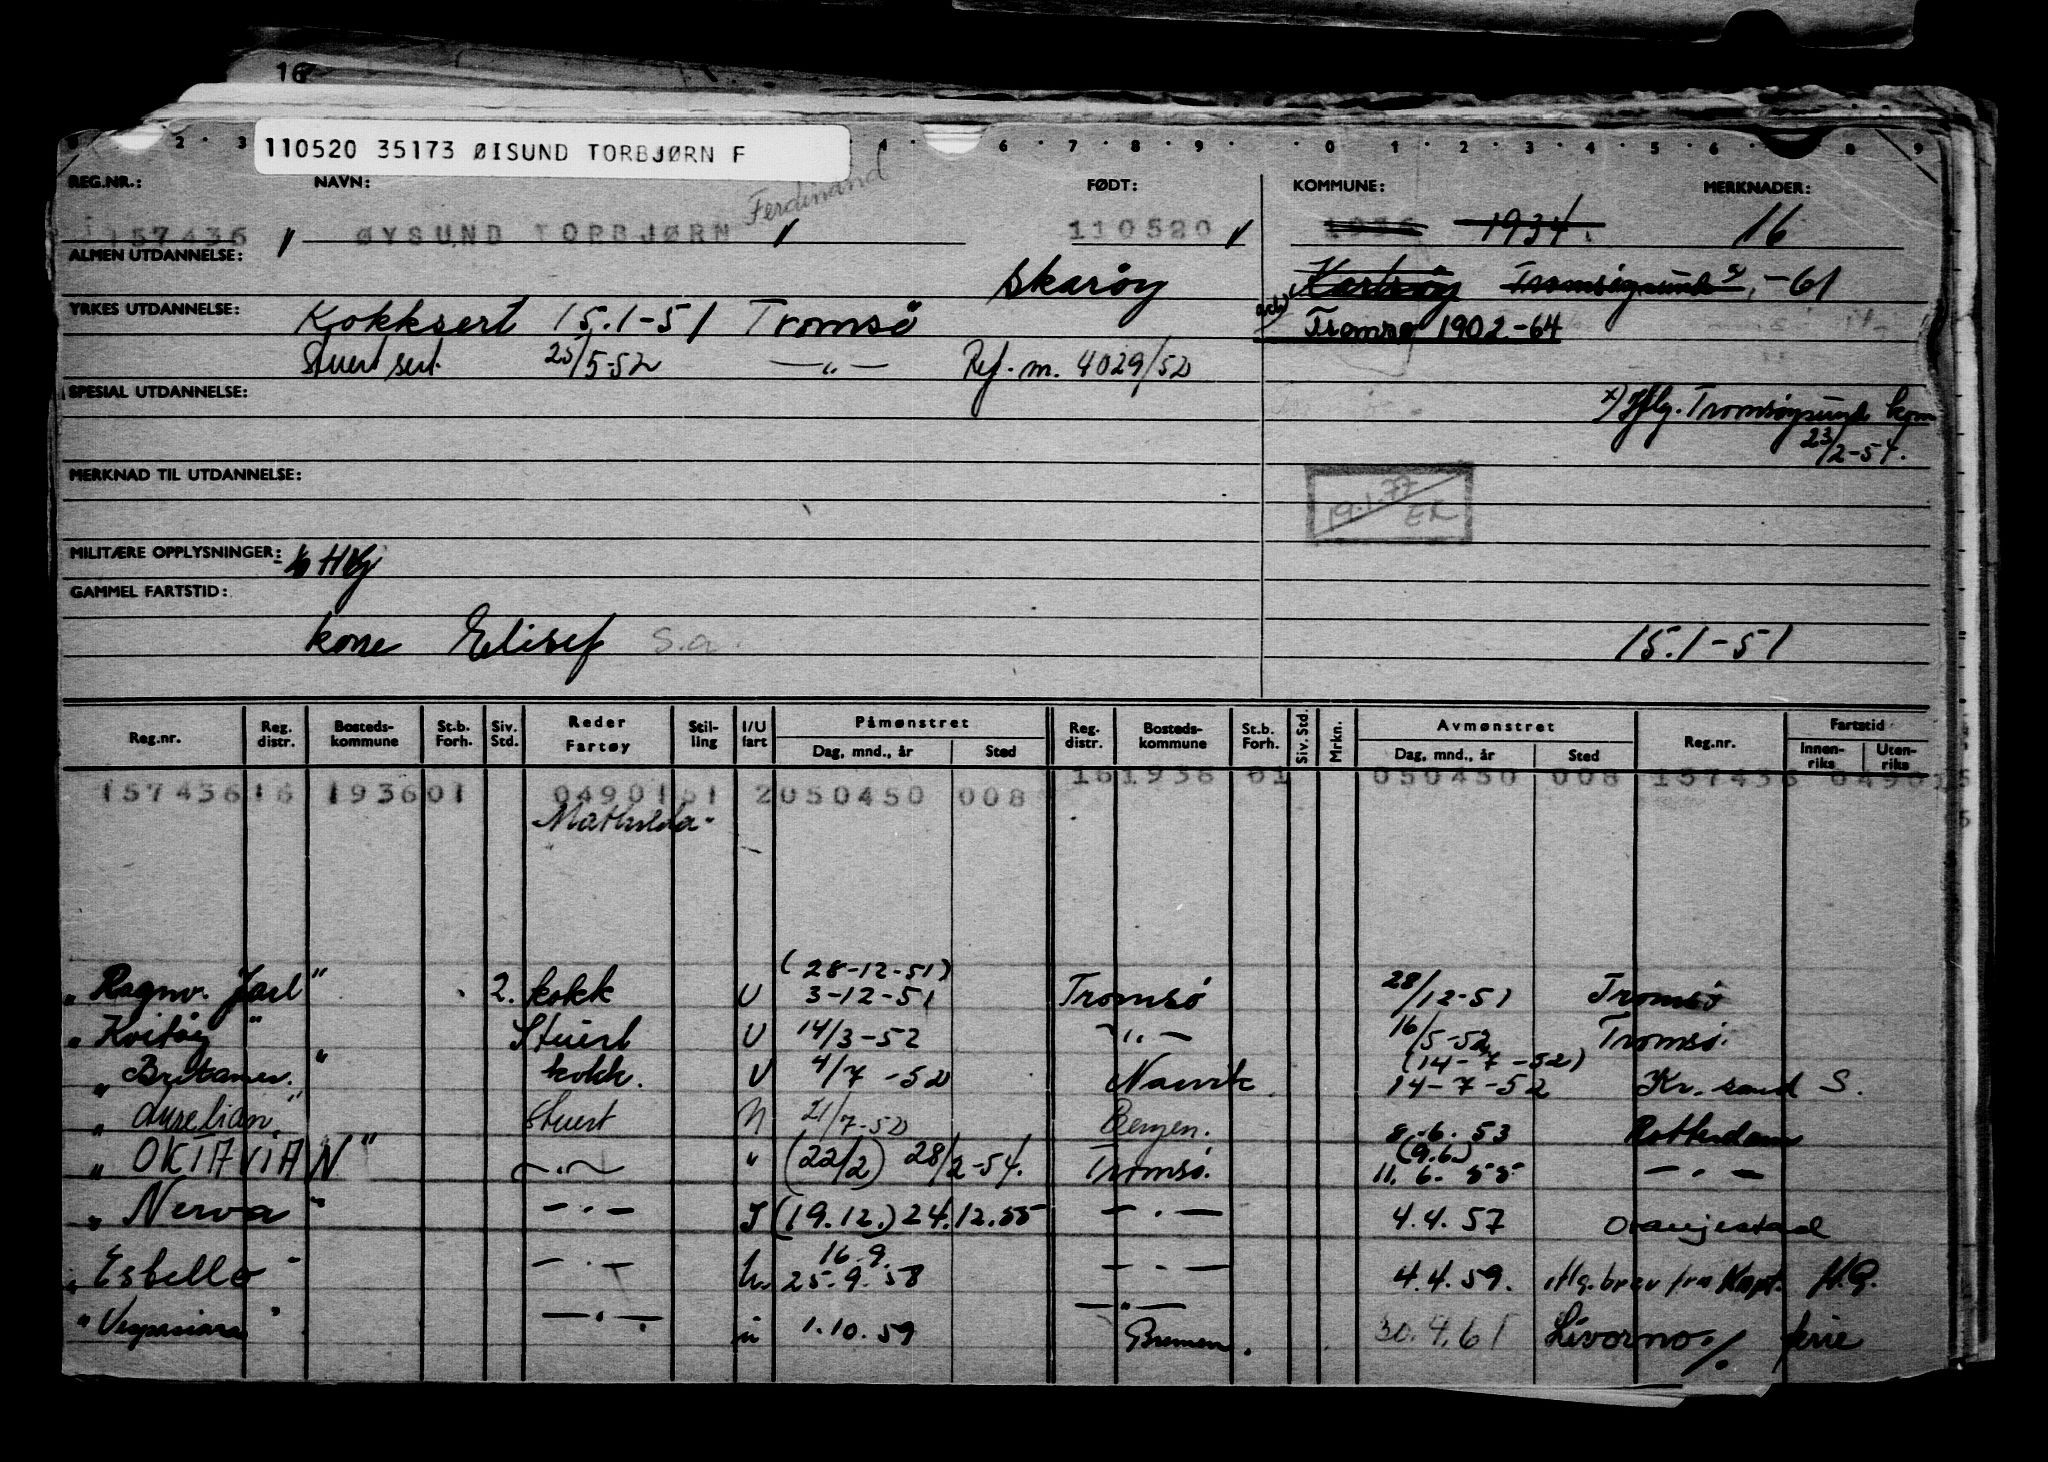 16
110520 35173 ØISUND TORBJØRN F
REG.NR.: NAVN: Ferdinand FØDT: KOMMUNE: MERKNADER:
157436 ØYSUND TORBJØRN 110520 1936 1934. 16
ALMEN UTDANNELSE: Skarøy Karlsøy Tromsøysund x) -61
YRKES UTDANNELSE: Kokksert 15.1-51 Tromsø Tromsø 1902-64
Stuert sert. 25/5-52 —"— Ref. m. 4029/52
SPESIAL UTDANNELSE: x) Iflg. Tromsøysund kom
23/2-54.
MERKNAD TIL UTDANNELSE:
19.1.77 ER
MILITÆRE OPPLYSNINGER:
GAMMEL FARTSTID:
kone Elisef s.a. 15.1-51
Reg.nr. Reg. distr. Bosteds-kommune St.b. Forh. Siv. Std. Reder Fartøy Stil-ling I/U fart Påmønstret Dag, mnd., år Sted Reg. distr. Bosteds-kommune St.b. Forh. Siv. Std. Mrkn. Avmønstret Dag, mnd., år Sted Reg.nr. Fartstid Innen-riks Uten-riks
157436 16 1936 01 0490151 2 050450 008 16 1936 01 050450 008 157436 0490
Mathilda
(28-12-51)
"Ragnv. Jarl" 2. kokk U 3-12-51 Tromsø 28/12-51 Tromsø
"Kvitøy" Stuert U 14/3-52 —"— 16/5-52 Tromsø.
(14-7-52)
"Britamer." kokk. U 4/7-52 Narvik. 14-7-52 Kr. sand S.
"Aurelian" Stuert U 21/7-52 Bergen. 8.6.53 Rotterdam
"OKTAVIAN" —"— " (22/2) 28/2-54. Tromsø. (9.6.) 11.6.55 —"—
"Nerva" —"— I (19.12.) 24.12.55 —"— 4.4.57 Oranjestad
16.9.
"Esbello" —"— U. 25.9.58 —"— 4.4.59. Iflg. brev fra Kapt. H.G.
—"—
"Vespasian" —"— U 1.10.59 Bremen. 30.4.61 Livorno/. ferie